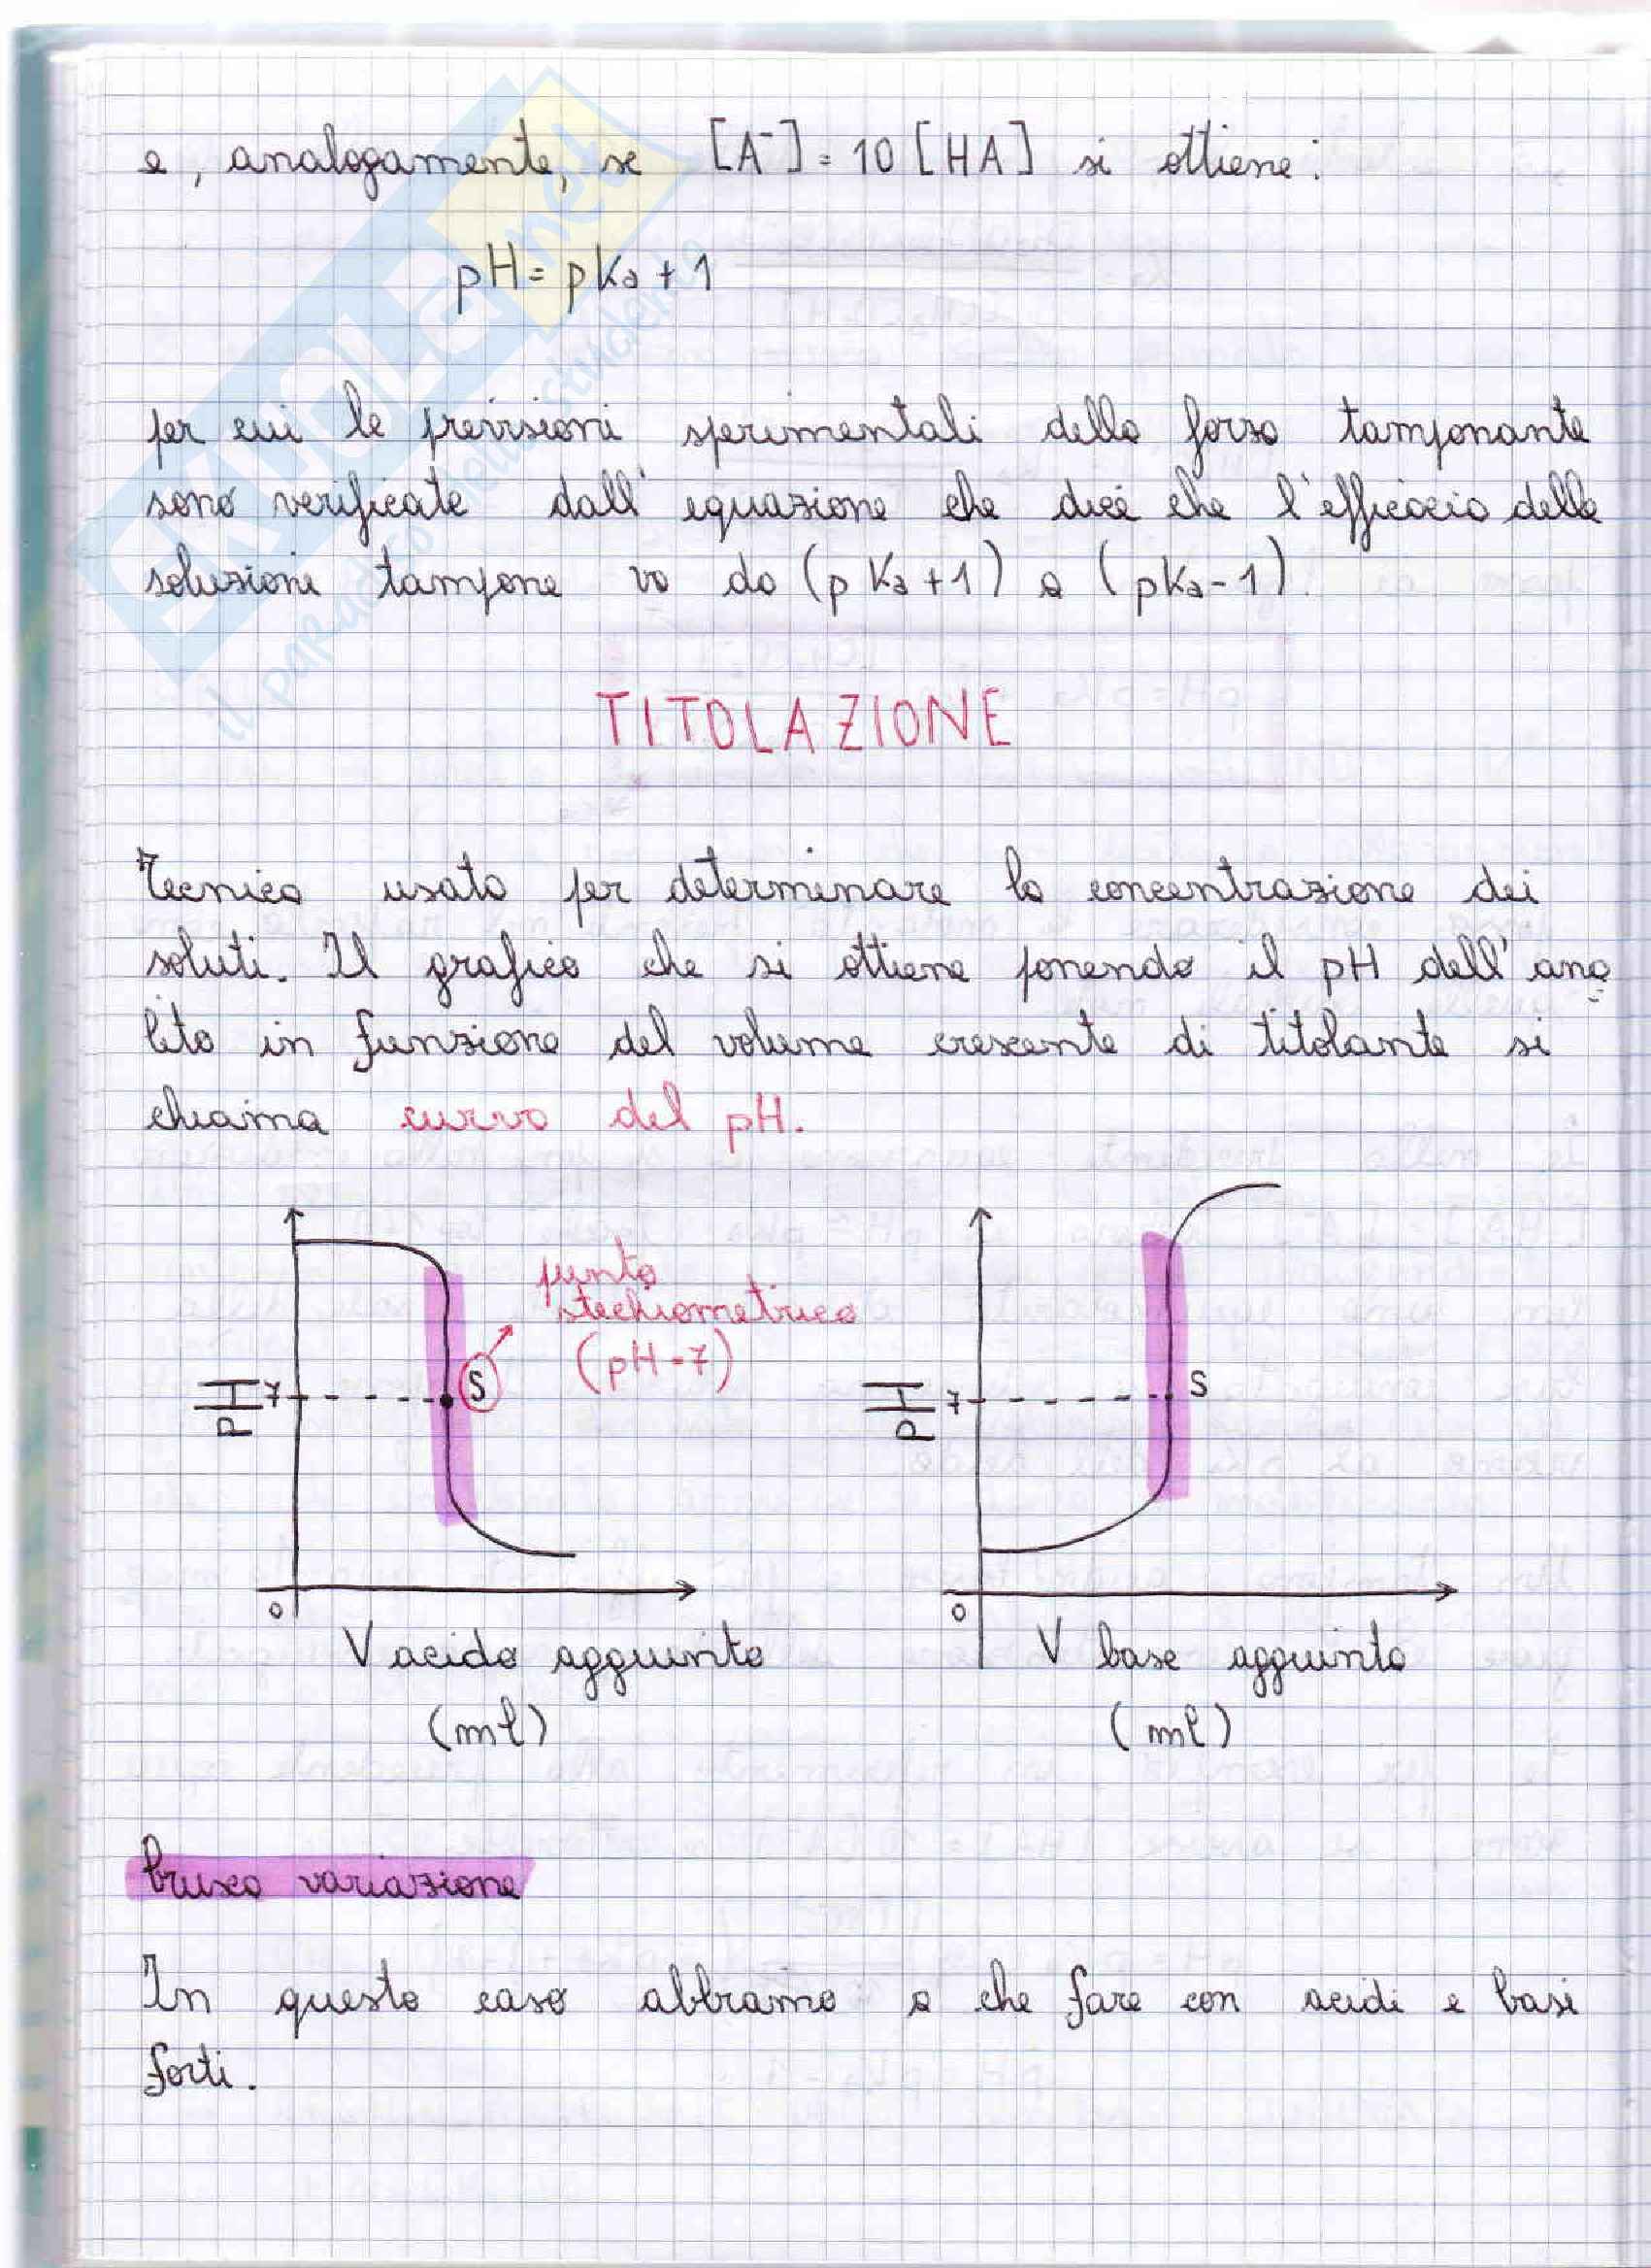 e, analogamente, se [A⁻] = 10 [HA] si ottiene:
pH = pKa + 1
per cui le previsioni sperimentali della forza tamponante
sono verificate dall'equazione che dice che l'efficacia delle
soluzioni tampone va da (pKa+1) a (pKa-1).
TITOLAZIONE
Tecnica usata per determinare la concentrazione dei
soluti. Il grafico che si ottiene ponendo il pH dell'ana
lita in funzione del volume crescente di titolante si
chiama curva del pH.
punto
stechiometrico
(pH = 7)
pH
7
S
0
V acido aggiunto
(ml)
pH
7
S
0
V base aggiunta
(ml)
brusca variazione
In questo caso abbiamo a che fare con acidi e basi
forti.
SKUOLA.net
il paradiso dello studente